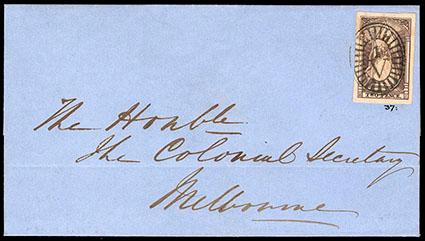 37.
The Honble
The Colonial Secretary
Melbourne